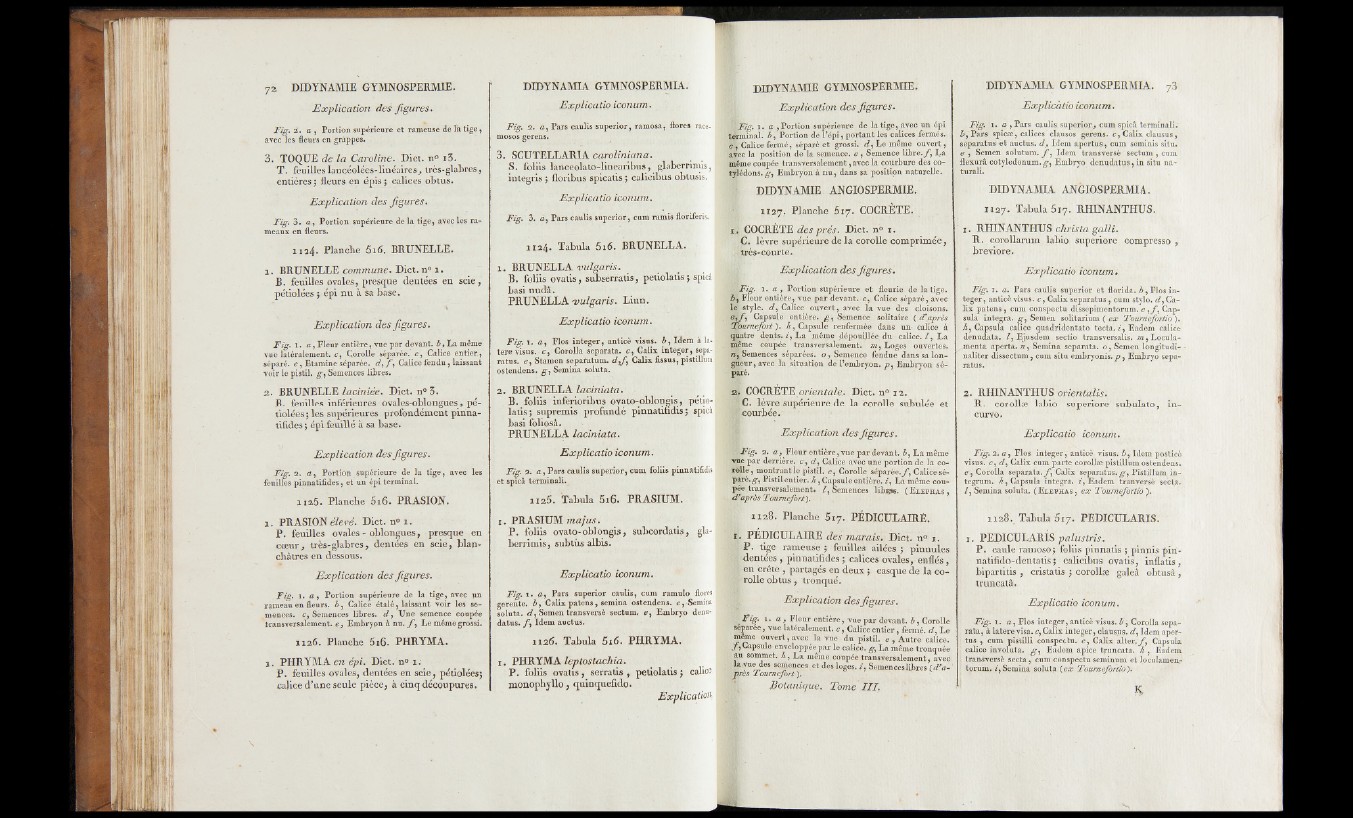 72 DIDYNAMIE GYMNOSPERMIE.
Explication des figures.
Fig. 2. a, Portion supérieure et rameuse de la tige,
avec les fleurs en grappes.
3. TOQUE de la Caroline. Dict. nº 13.
T. feuilles lancéolées-linéaires, très-glabres,
entières; fleurs en épis; calices obtus.
Explication des figures.
Fig. 3. a, Portion supérieure de la tige, avec les ra-
meaux en fleurs.
1124. Planche 516. BRUNELLE.
1. BRUNELLE commune. Dict. nº 1.
B. feuilles ovales, presque dentées en scie,
pétiolées; épi nu à sa base.
Explication des figures.
Fig. 1. a, Fleur entière, vue par devant. b, La même
vue latéralement. c, Corolle séparée. c, Calice entier,
séparé. c, Etamine séparée. d, f, Calice fendu, laissant
voir le pistil. g, Semences libres.
2. BRUNELLE laciniée. Dict. nº 3.
B. feuilles inférieures ovales-oblongues, pé-
tiolées; les supérieures profondément pinna-
tifides; épi feuillé à sa base.
Explication des figures.
Fig. 2. a, Portion supérieure de la tige, avec les
feuilles pinnatifides, et un épi terminal.
1125. Planche 516. PRASION.
1. PRASION élevé. Dict. nº 1.
P. feuilles ovales-oblongues, presque en
cœur, très-glabres, dentées en scie, blan-
châtres en dessous.
Explication des figures.
Fig. 1. a, Portion supérieure de la tige, avec un
rameau en fleurs. b, Calice étalé, laissant voir les se-
mences. c, Semences libres. d, Une semence coupée
transversalement. e, Embryon à nu. f, Le même grossi.
1126. Planche 516. PHRYMA.
1. PHRYMA en épi. Dict. nº 1.
P. feuilles ovales, dentées en scie, pétiolées;
calice d'une seule pièce, à cinq découpures.
DIDYNAMIA GYMNOSPERMIA.
Explicatio iconum.
Fig. 2. a, Pars caulis superior, ramosa, flores race-
mosos gerens.
3. SCUTELLARIA caroliniana.
S. foliis lanceolato-linearibus, glaberrimis,
integris; floribus spicatis; calicibus obtusis.
Explicatio iconum.
Fig. 3. a, Pars caulis superior, cum ramis floriferis.
1124. Tabula 516. BRUNELLA.
1. BRUNELLA vulgaris.
B. foliis ovatis, subserratis, petiolatis; spicâ
basi nudâ.
PRUNELLA vulgaris. Linn.
Explicatio iconum.
Fig. 1. a, Flos integer, anticè visus. b, Idem à la-
tere visus. c, Corolla separata. c, Calix integer, sepa-
ratus. c, Stamen separatum. d, f, Calix fissus, pistillum
ostendens. g, Semina soluta.
2. BRUNELLA laciniata.
B. foliis inferioribus ovato-oblongis, petio-
latis; supremis profundè pinnatifidis; spicâ
basi foliosâ.
PRUNELLA laciniata.
Explicatio iconum.
Fig. 2. a, Pars caulis superior, cum foliis pinnatifidis
et spicâ terminali.
1125. Tabula 516. PRASIUM.
1. PRASIUM majus.
P. foliis ovato-oblongis, subcordatis, gla-
berrimis, subtùs albis.
Explicatio iconum.
Fig. 1. a, Pars superior caulis, cum ramulo flores
gerente. b, Calix patens, semina ostendens. c, Semina
soluta. d, Semen transversè sectum. e, Embryo denu-
datus. f, Idem auctus.
1126. Tabula 516. PHRYMA.
1. PHRYMA leptostachia.
P. foliis ovatis, serratis, petiolatis; calice
monophyllo, quinquefido.
Explication
DIDYNAMIE GYMNOSPERMIE.
Explication des figures.
Fig. 1. a, Portion supérieure de la tige, avec un épi
terminal. b, Portion de l'épi, portant les calices fermés.
c, Calice fermé, séparé et grossi. d, Le même ouvert,
avec la position de la semence. e, Semence libre. f, La
même coupée transversalement, avec la courbure des co-
tylédons. g, Embryon à nu, dans sa position naturelle.
DIDYNAMIE ANGIOSPERMIE.
1127. Planche 517. COCRÈTE.
1. COCRÈTE des prés. Dict. nº 1.
C. lèvre supérieure de la corolle comprimée,
très-courte.
Explication des figures.
Fig. 1. a, Portion supérieure et fleurie de la tige.
b, Fleur entière, vue par devant. c, Calice séparé, avec
le style. d, Calice ouvert, avec la vue des cloisons.
e, f, Capsule entière. g, Semence solitaire (d'après
Tournefort). h, Capsule renfermée dans un calice à
quatre dents. i, La même dépouillée du calice. l, La
même coupée transversalement. m, Loges ouvertes.
n, Semences séparées. o, Semence fendue dans sa lon-
gueur, avec la situation de l'embryon. p, Embryon sé-
paré.
2. COCRÈTE orientale. Dict. nº 12.
C. lèvre supérieure de la corolle subulée et
courbée.
Explication des figures.
Fig. 2. a, Fleur entière, vue par devant. b, La même
vue par derrière. c, d, Calice avec une portion de la co-
rolle, montrant le pistil. e, Corolle séparée. f, Calice sé-
paré. g, Pistil entier. h, Capsule entière. i, La même cou-
pée transversalement. l, Semences libres. (ELEPHAS,
d'après Tournefort).
1128. Planche 517. PÉDICULAIRE.
1. PÉDICULAIRE des marais. Dict. nº 1.
P. tige rameuse; feuilles ailées; pinnules
dentées, pinnatifides; calices ovales, enflés,
en crête, partagés en deux; casque de la co-
rolle obtus, tronqué.
Explication des figures.
Fig. 1. a, Fleur entière, vue par devant. b, Corolle
séparée, vue latéralement. c, Calice entier, fermé. d, Le
même ouvert, avec la vue du pistil. e, Autre calice.
f, Capsule enveloppée par le calice. g, La même tronquée
au sommet. h, La même coupée transversalement, avec
la vue des semences et des loges. i, Semences libres (d'a-
près Tournefort).
Botanique. Tome III.
DIDYNAMIA GYMNOSPERMIA. 73
Explicatio iconum.
Fig. 1. a, Pars caulis superior, cum spicâ terminali.
b, Pars spicæ, calices clausos gerens. c, Calix clausus,
separatus et auctus. d, Idem apertus, cum seminis situ.
e, Semen solutum. f, Idem transversè sectum, cum
flexurâ cotyledonum. g, Embryo denudatus, in situ na-
turali.
DIDYNAMIA ANGIOSPERMIA.
1127. Tabula 517. RHINANTHUS.
1. RHINANTHUS christa galli.
R. corollarum labio superiore compresso,
breviore.
Explicatio iconum.
Fig. 1. a. Pars caulis superior et florida. b, Flos in-
teger, anticè visus. c, Calix separatus, cum stylo. d, Ca-
lix patens, cum conspectu dissepimentorum. e, f, Cap-
sula integra. g, Semen solitarium (ex Tournefortio).
h, Capsula calice quadridentato tecta. i, Eadem calice
denudata. l, Ejusdem sectio transversalis. m, Locula-
menta aperta. n, Semina separata. o, Semen longitudi-
naliter dissectum, cum situ embryonis. p, Embryo sepa-
ratus.
2. RHINANTHUS orientalis.
R. corollæ labio superiore subulato, in-
curvo.
Explicatio iconum.
Fig. 2. a, Flos integer, anticè visus. b, Idem posticè
visus. c, d, Calix cum parte corollæ pistillum ostendens.
e, Corolla separata. f, Calix separatus. g, Pistillum in-
tegrum. h, Capsula integra. i, Eadem transversè secta.
l, Semina soluta. (ELEPHAS, ex Tournefortio).
1128. Tabula 517. PEDICULARIS.
1. PEDICULARIS palustris.
P. caule ramoso; foliis pinnatis; pinnis pin-
natifido-dentatis; calicibus ovatis, inflatis,
bipartitis, cristatis; corollæ galeâ obtusâ,
truncatâ.
Explicatio iconum.
Fig. 1. a, Flos integer, anticè visus. b, Corolla sepa-
rata, à latere visa. c, Calix integer, clausus. d, Idem aper-
tus, cum pistilli conspectu. e, Calix alter. f, Capsula
calice involuta. g, Eadem apice truncata. h, Eadem
transversè secta, cum conspectu seminum et loculamen-
torum. i, Semina soluta (ex Tournefortio).
K